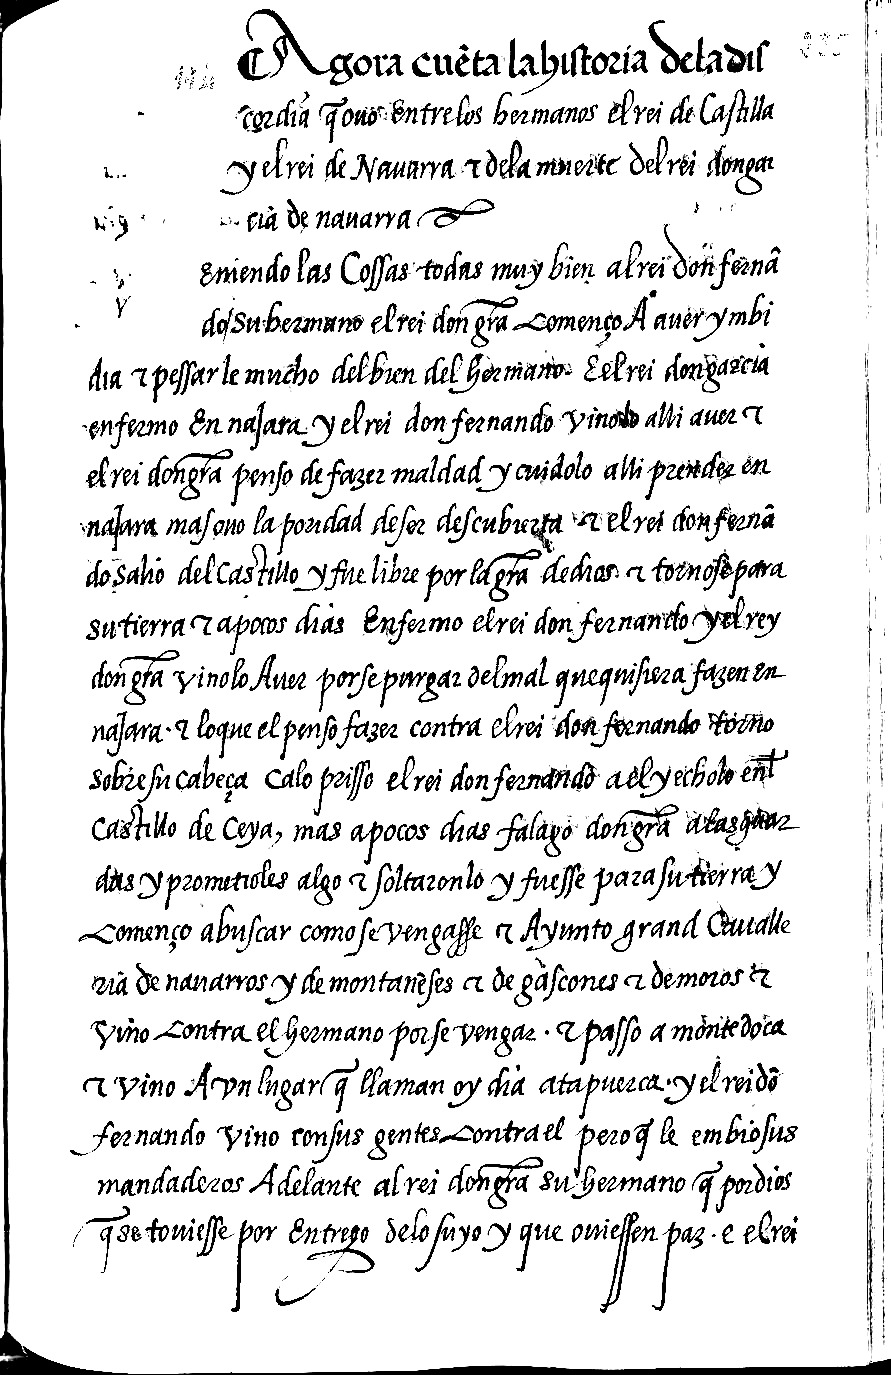 Agora cuẽta la historia de la dis
cordia q̃ ouo Entre los hermanos el rei de Castilla
y el rei de Nauarra τ de la muerte del rei don gar
cia de nauarra
Eniendo las Cossas todas muy bien al rei don fernã
do su hermano el rei don gr̃a Començo A auer ymbi
dia τ pessar le mucho del bien del hermano. E el rei don garcia
enfermo En najara y el rei don fernando vinolo alli auer τ
el rei don gr̃a penso de fazer maldad y cuidolo alli prender en
najara mas ouo la poridad de ser descubierta τ el rei don fernã
do salio del Castillo y fue libre por la gr̃a de dios τ tornose para
su tierra τ a pocos dias Enfermo el rei don fernando y el rey
don gr̃a vinolo Auer por se purgar del mal que quisiera fazer En
najara. τ lo que el penso fazer contra el rei don fernando torno
sobre su cabeça Calo prisso el rei don fernando a el y echolo enl
Castillo de Ceya, mas a pocos dias falago don gr̃a a las guar
das y prometioles algo τ soltaronlo y fuesse para su tierra y
Començo a buscar como se vengasse τ Ayunto grand Caualle
ria de nauarros y de montañeses τ de gascones τ de moros τ
vino Contra el hermano por se vengar. τ passo a monte doca
τ vino A vn lugar q̃ llaman oy dia atapuerca. y el rei dõ
fernando vino con sus gentes Contra el pero q̃ le embio sus
mandaderos Adelante al rei don gr̃a su hermano q̃ por dios
q̃ se touiesse por Entrego de lo suyo y que ouiessen paz. e el rei